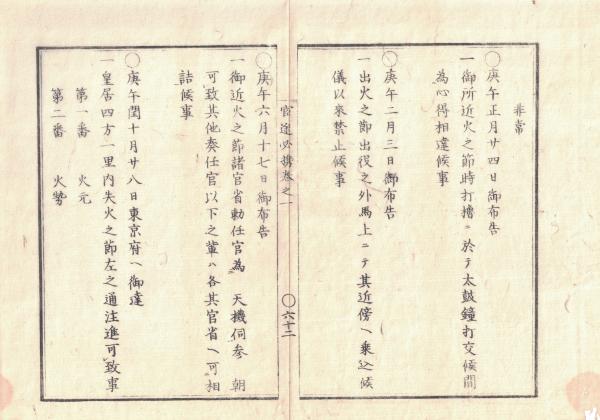 非常
○庚午正月廿四日御布告
一御所近火之節時打擔ニ於テ太鼓鐘打交候間
為心得相達候事
○庚午二月三日御布告
一出火之節出役之外馬上ニテ其近傍ヘ乗込候
儀以來禁止候事
官途必携巻之一
○六十二
○庚午六月十七日御布告
一御近火之節諸官省勅任官為 天機伺参 朝
可致其他奏任官以下之輩ハ各其官省ヘ可相
詰候事
○庚午閏十月廿八日東京府ヘ御達
一皇居四方一里内失火之節左之通注進可致事
第一番 火元
第二番 火勢